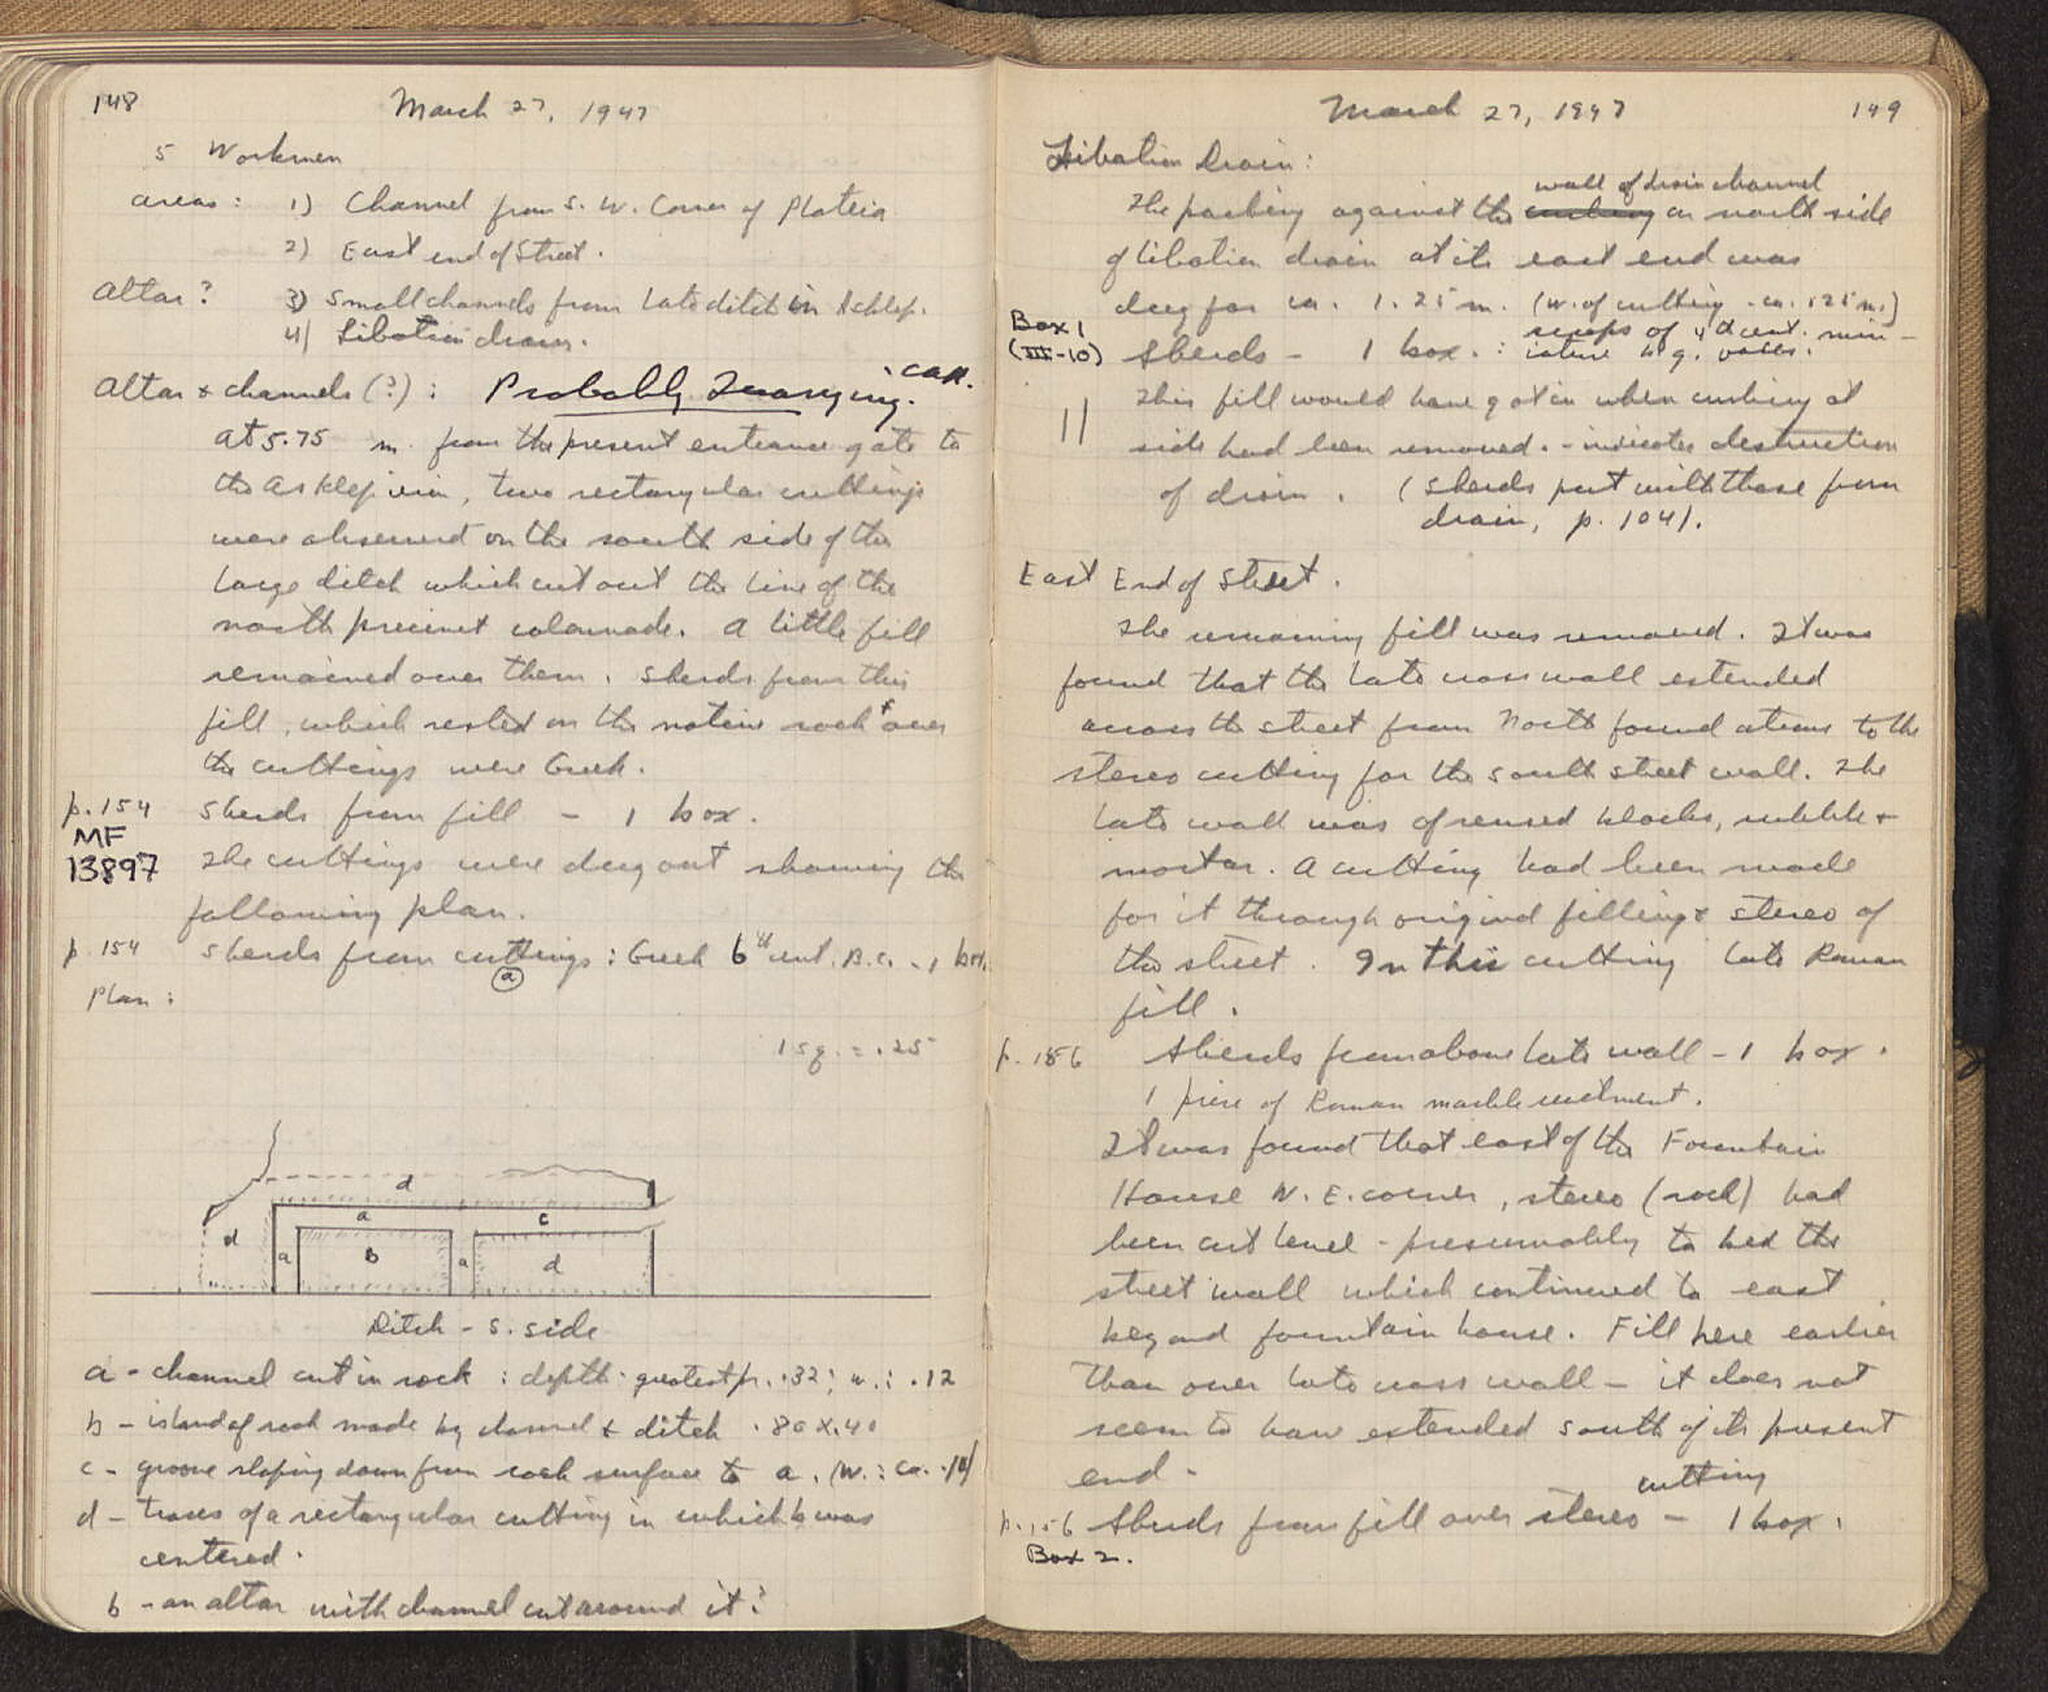 148
March 27, 1947
5 Workmen
areas: 1) Channel from S.W. Corner of Plateia
2) East end of Street.
Altar? 3) Small channels from late ditch in Asklep.
4) Libation drain.
Altar & channels (?): Probably Quarrying. CAR.
At 5.75 m. from the present entrance gate to
the Asklepieion, two rectangular cuttings
were observed on the south side of the
large ditch which cut out the line of the
north precinct colonnade. A little fill
remained over them. Sherds from this
fill, which rested on the native rock & over
the cuttings were Greek.
p. 154 Sherds from fill - 1 box.
MF
13897 The cuttings were dug out showing the
following plan.
p. 154 Sherds from cuttings: Greek 6th cent. B.C. - 1 box.
a
Plan:
1 sq. = .25
d
a c
d a B a d
Ditch - S. side
a - channel cut in rock: depth: greatest pr. .32; w.: .12
b - island of rock made by channel & ditch .80 x .40
c - groove sloping down from rock surface to a. (W.: ca. .10)
d - traces of a rectangular cutting in which b was
centered.
b - an altar with channel cut around it?
March 27, 1947
149
Libation Drain:
wall of drain channel
The packing against the on north side
of libation drain at its east end was
dug for ca. 1.25 m. (W. of cutting - ca. .25 m.)
Box 1
(III-10) Sherds - 1 box.: scraps of 4th cent. min-
iature bl. g. vases.
This fill would have got in when curbing at
side had been removed. - indicates destruction
of drain. (Sherds put with those from
drain, p. 104).
East End of Street.
The remaining fill was removed. It was
found that the late cross wall extended
across the street from North foundations to the
stereo cutting for the south street wall. The
late wall was of reused blocks, rubble &
mortar. A cutting had been made
for it through original filling & stereo of
the street. In this cutting late Roman
fill.
p. 156 Sherds from above late wall - 1 box.
1 piece of Roman marble revetment.
It was found that east of the Fountain
House N.E. corner, stereo (rock) had
been cut level - presumably to bed the
street wall which continued to east
beyond fountain house. Fill here earlier
than over late cross wall - it does not
seem to have extended south of its present
end.
cutting
p. 156 Sherds from fill over stereo - 1 box.
Box 2.